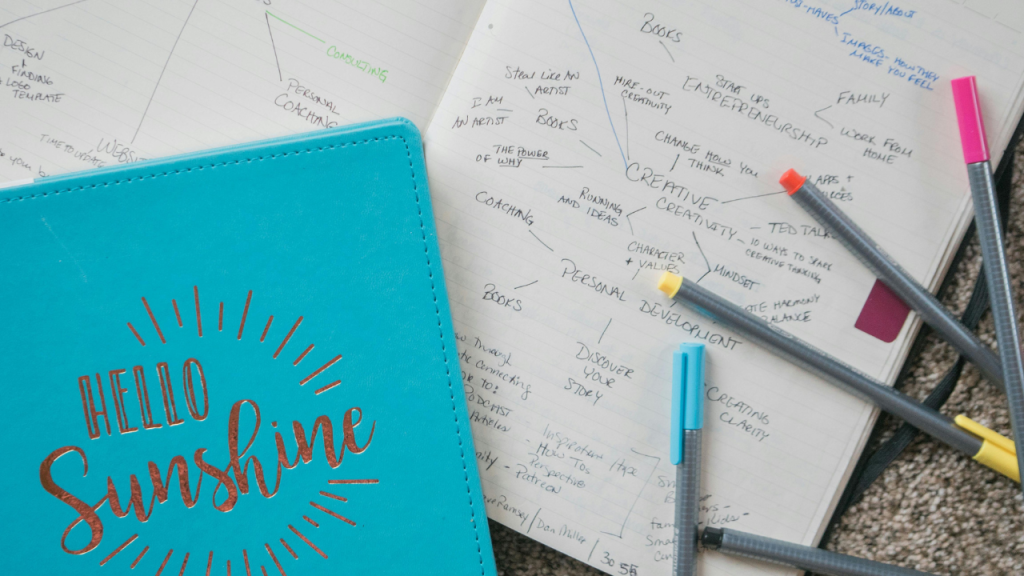 DESIGN
FINDING
LOGO
TEMPLATE
CONSULTING
PERSONAL
COACHING
HELLO
Sunshine
STORY/ABOUT
IMAGES - HOW THEY
MAKE YOU FELL
BOOKS
START UPS
ENTREPRENEURSHIP
FAMILY
WORK FROM
HOME
STEAL LIKE AN
ARTIST
I AM
AN ARTIST
BOOKS
THE POWER
OF WHY
HIRE-OUT
CREATIVITY
CHANGE HOW YOU
THINK
CREATIVE
CREATIVITY
APPS +
RUNNING
AND IDEAS
TED TALK
10 WAYS TO SPARK
CREATIVE THINKING
MINDSET
HARMONY
BALANCE
CHARACTER
+ VALUES
COACHING
PERSONAL DEVELOPMENT
BOOKS
DISCOVER
YOUR
STORY
CREATING
CLARITY
Through
Connecting
TO:
PODCAST
Inspiration
- HOW TOS
- Perspective
- Patreon
Ramsey/Dan Miller